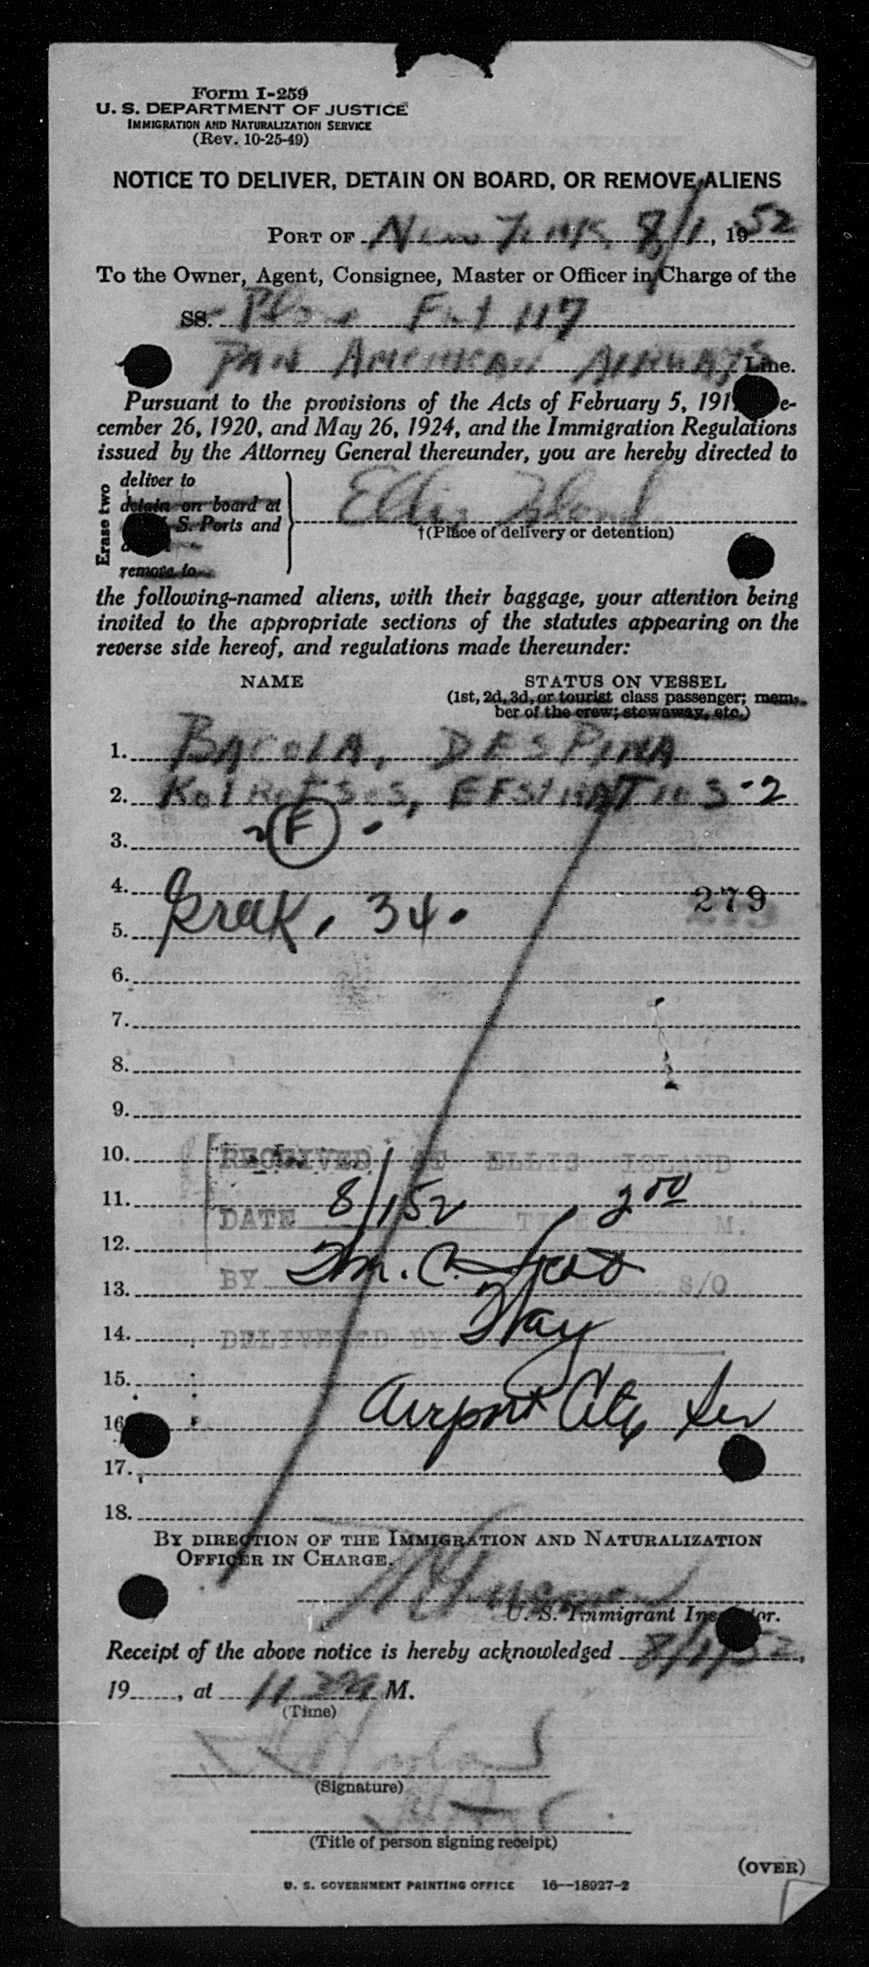 Form I-259
U. S. DEPARTMENT OF JUSTICE
IMMIGRATION AND NATURALIZATION SERVICE
(Rev. 10-25-49)
NOTICE TO DELIVER, DETAIN ON BOARD, OR REMOVE ALIENS
PORT OF New York, 8/1, 1952
To the Owner, Agent, Consignee, Master or Officer in Charge of the
SS. Plane 117
PAN AMERICAN AIRWAYS Line.
Pursuant to the provisions of the Acts of February 5, 191
cember 26, 1920, and May 26, 1924, and the Immigration Regulations
issued by the Attorney General thereunder, you are hereby directed to
Erase two
deliver to
detain on board at
S. Ports and
remove to
Ellis Island
†(Place of delivery or detention)
the following-named aliens, with their baggage, your attention being
invited to the appropriate sections of the statutes appearing on the
reverse side hereof, and regulations made thereunder:
NAME STATUS ON VESSEL
(1st, 2d, 3d, or tourist class passenger; mem-
ber of the crew; stowaway, etc.)
1. BACOLA, DESPINA
2. EFSTRATIOS - 2
3. F
4. 279
5. 34.
6.
7.
8.
9.
10. RECEIVED AT ELLIS ISLAND
11. DATE 8/1/52 TIME 2 00 M.
12.
13. BY S/O
14. DELIVERED BY
15.
16. Airport City Ser
17.
18.
BY DIRECTION OF THE IMMIGRATION AND NATURALIZATION
OFFICER IN CHARGE.
U. S. Immigrant Inspector.
Receipt of the above notice is hereby acknowledged 8/1/52,
19, at M.
(Time)
(Signature)
(Title of person signing receipt)
(OVER)
U. S. GOVERNMENT PRINTING OFFICE 16—18927-2